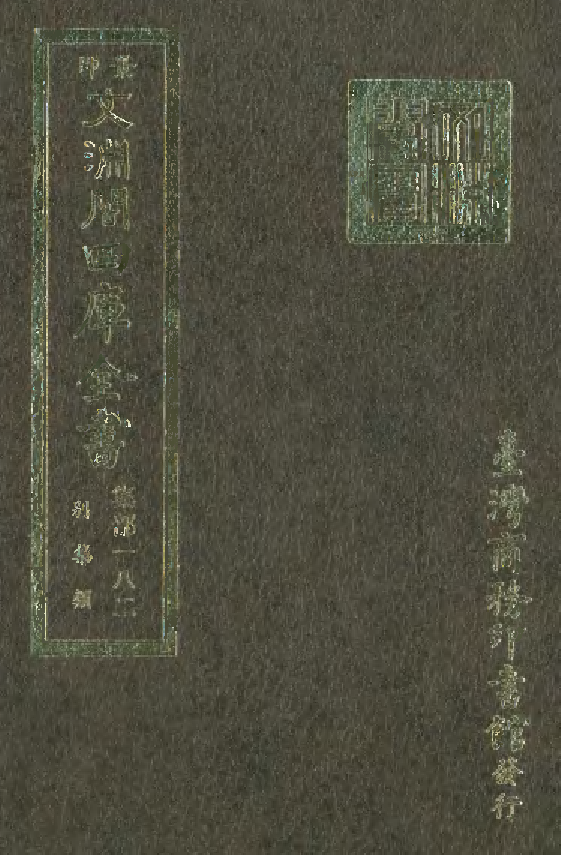 景印
文淵閣四庫全書
集部一八
別集類
臺灣商務印書館發行